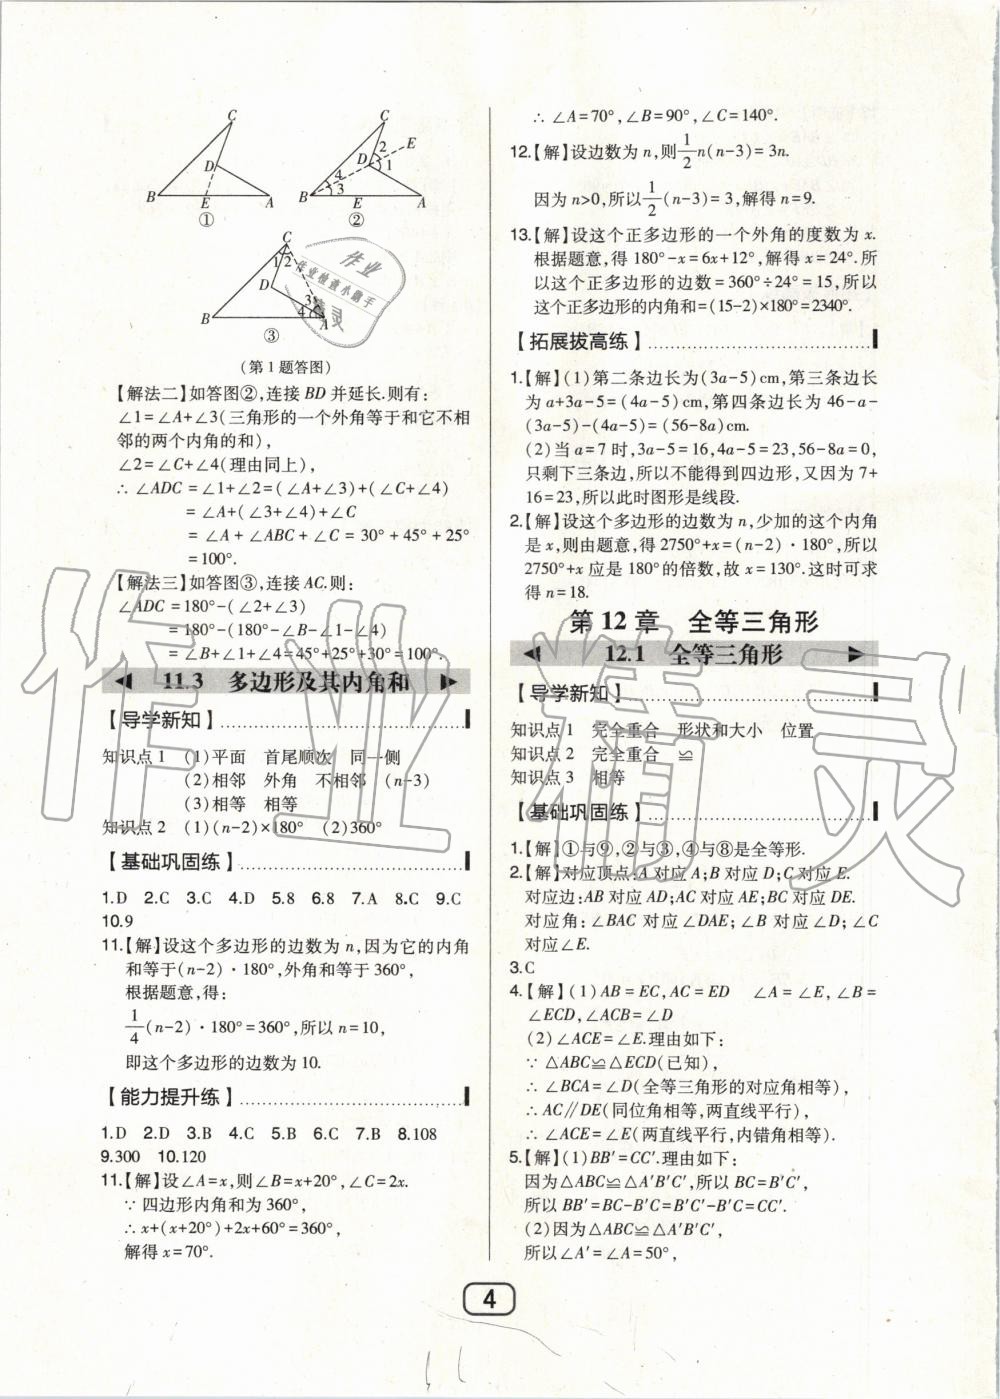 C
D
B
E
A
①
C
2
E
D
1
4
3
B
E
A
②
C
1
2
D
3
4
B
A
③
(第1题答图)
【解法二】如答图②,连接BD并延长.则有:
∠1=∠A+∠3(三角形的一个外角等于和它不相
邻的两个内角的和),
∠2=∠C+∠4(理由同上),
∴ ∠ADC=∠1+∠2=(∠A+∠3)+(∠C+∠4)
=∠A+(∠3+∠4)+∠C
=∠A+∠ABC+∠C=30°+45°+25°
=100°.
【解法三】如答图③,连接AC.则:
∠ADC=180°-(∠2+∠3)
=180°-(180°-∠B-∠1-∠4)
=∠B+∠1+∠4=45°+25°+30°=100°.
11.3 多边形及其内角和
【导学新知】
知识点1 (1)平面 首尾顺次 同一侧
(2)相邻 外角 不相邻 (n-3)
(3)相等 相等
知识点2 (1)(n-2)×180° (2)360°
【基础巩固练】
1.D 2.C 3.C 4.D 5.8 6.8 7.A 8.C 9.C
10.9
11.【解】设这个多边形的边数为n,因为它的内角
和等于(n-2)·180°,外角和等于360°,
根据题意,得:
1/4(n-2)·180°=360°,所以n=10,
即这个多边形的边数为10.
【能力提升练】
1.D 2.D 3.B 4.C 5.B 6.C 7.B 8.108
9.300 10.120
11.【解】设∠A=x,则∠B=x+20°,∠C=2x.
∵四边形内角和为360°,
∴x+(x+20°)+2x+60°=360°,
解得x=70°.
∴ ∠A=70°,∠B=90°,∠C=140°.
12.【解】设边数为n,则1/2n(n-3)=3n.
因为n>0,所以1/2(n-3)=3,解得n=9.
13.【解】设这个正多边形的一个外角的度数为x.
根据题意,得180°-x=6x+12°,解得x=24°.所
以这个正多边形的边数=360°÷24°=15,所以
这个正多边形的内角和=(15-2)×180°=2340°.
【拓展拔高练】
1.【解】(1)第二条边长为(3a-5)cm,第三条边长
为a+3a-5=(4a-5)cm,第四条边长为46-a-
(3a-5)-(4a-5)=(56-8a)cm.
(2)当a=7时,3a-5=16,4a-5=23,56-8a=0,
只剩下三条边,所以不能得到四边形,又因为7+
16=23,所以此时图形是线段.
2.【解】设这个多边形的边数为n,少加的这个内角
是x,则由题意,得2750°+x=(n-2)·180°,所以
2750°+x应是180°的倍数,故x=130°.这时可求
得n=18.
第12章 全等三角形
12.1 全等三角形
【导学新知】
知识点1 完全重合 形状和大小 位置
知识点2 完全重合 ≌
知识点3 相等
【基础巩固练】
1.【解】①与⑨,②与③,④与⑧是全等形.
2.【解】对应顶点:A对应A;B对应D;C对应E.
对应边:AB对应AD;AC对应AE;BC对应DE.
对应角:∠BAC对应∠DAE;∠B对应∠D;∠C
对应∠E.
3.C
4.【解】(1)AB=EC,AC=ED ∠A=∠E,∠B=
∠ECD,∠ACB=∠D
(2)∠ACE=∠E.理由如下:
∵ △ABC≌△ECD(已知),
∴ ∠BCA=∠D(全等三角形的对应角相等),
∴ AC∥DE(同位角相等,两直线平行),
∴ ∠ACE=∠E(两直线平行,内错角相等).
5.【解】(1)BB′=CC′.理由如下:
因为△ABC≌△A′B′C′,所以BC=B′C′,
所以BB′=BC-B′C=B′C′-B′C=CC′.
(2)因为△ABC≌△A′B′C′,
所以∠A′=∠A=50°,
4
作业
作业检查小助手
精灵
作业精灵